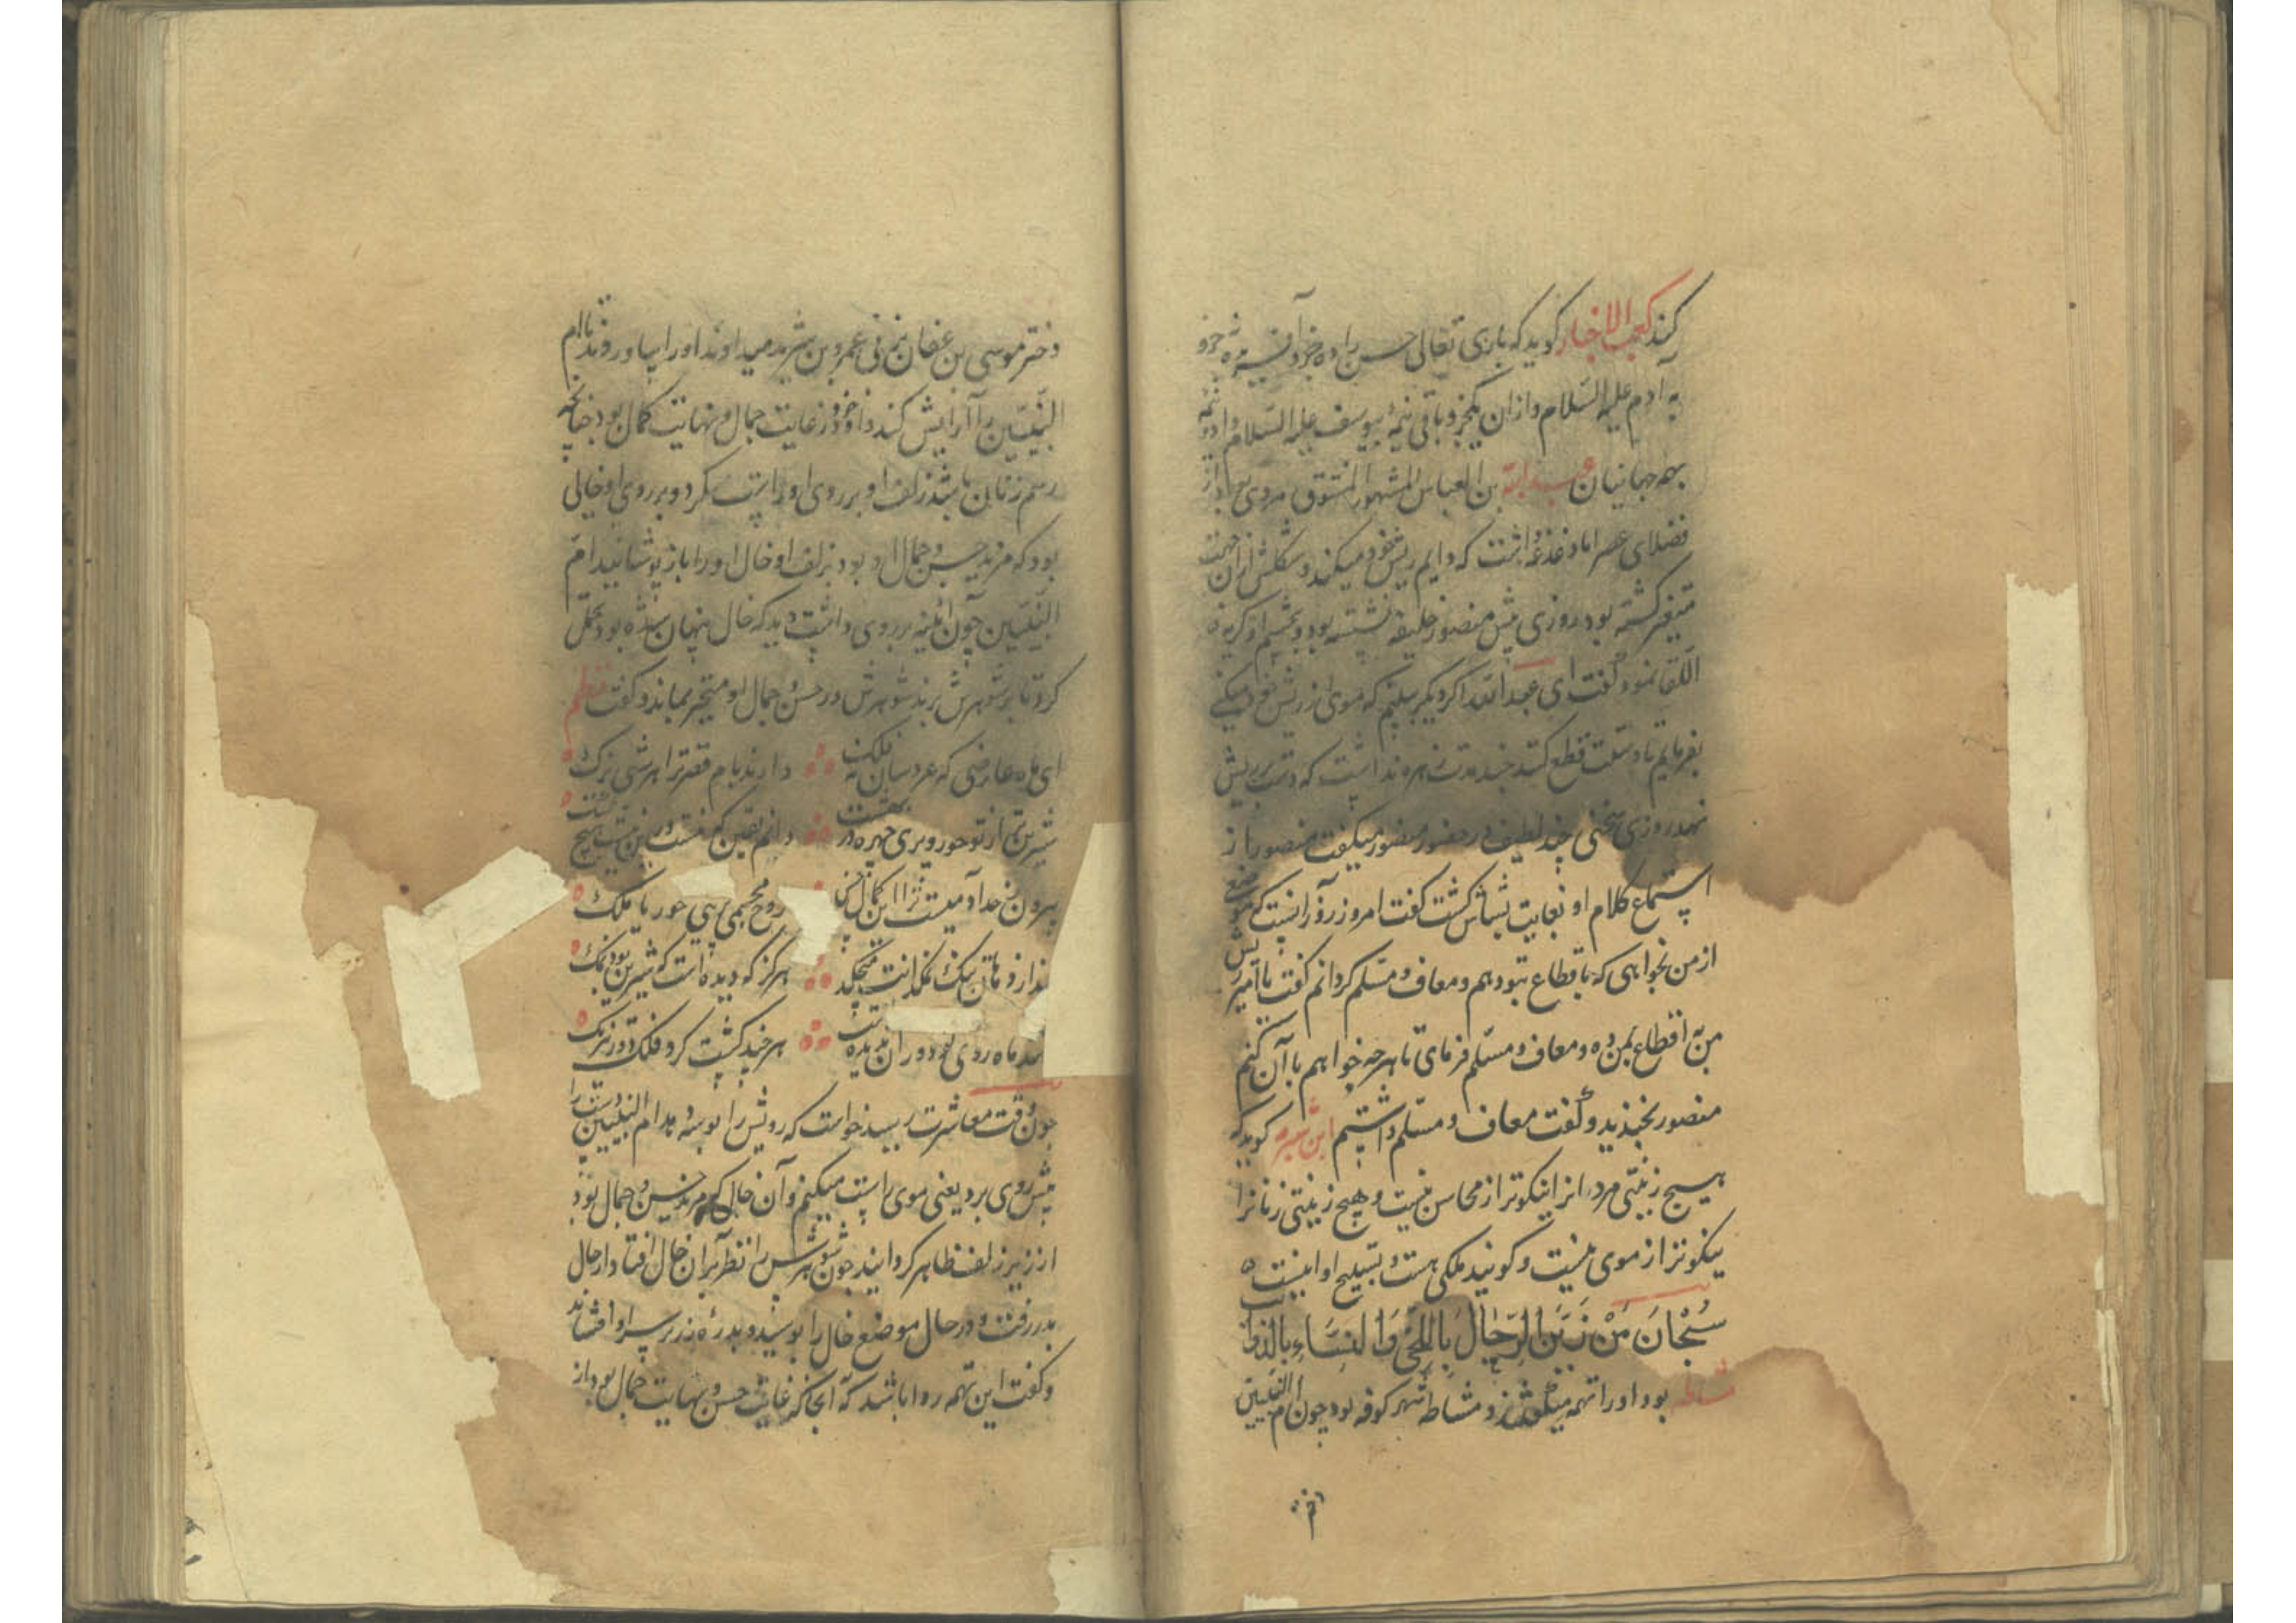 کند کعب الاخبار کوید که باری تعالی حسن را ده جزو آفرید نه جزو
به آدم علیه السلام و ازان یکجزو باقی نیمهٔ بیوسف علیه السلام داد و نیمه
بهمه جهانیان عبدالله بن العباس المشهور المنتوف مردی بود از
فضلای عصر اما دغدغه داشت که دایم ریش خود میکند و شکلش ازان جهت
متغیر کشته بود روزی پیش منصور خلیفه نشسته بود و بچشم او کریه
القا نمود گفت ای عبدالله اکر دیکر ببینم که موی از ریش خود میکنی
بفرمایم تا دستت قطع کنند چند مدت زهره نداشت که دست بریش
نهد روزی سخنی چند لطیف در حضور منصور میکفت منصور را از
استماع کلام او بغایت بشاش کشت کفت امروز روز آنست که موضع
از من بخواهی که باقطاع بتو دهم و معاف و مسلم کردانم کفت یا امیر ریش
من به اقطاع بمن ده و معاف و مسلم فرمای تا هرچه خواهم با آن کنم
منصور بخندید و گفت معاف و مسلم داشتم ابن شبرمه کوید که
هیچ زینتی مردانرا نیکوتر از محاسن نیست و هیچ زینتی زنانرا
نیکوتر از موی نیست و کویند ملکی هست و تسبیح او اینست
سُبْحَانَ مَنْ زَیَّنَ الرِّجَالَ بِاللِّحَی وَالنِّسَاءِ بِالذَّوَائب
مشاطه بود او را تهمه میکفتند و مشاطه شهر کوفه بود چون ام النبیین
دختر موسی بن عفان بنی عمرو بن مرثد میداوند او را بیاوردند تا ام
النبیین را آرایش کند و او خود در غایت جمال و نهایت کمال بود چنانچه
رسم زنان باشد زلف او بر روی او راست کرد و بر روی او خالی
بود که مزید حسن و جمال او بود بزلف او خال او را باز پوشانید ام
النبیین چون آئینه بر روی داشت دید که خال پنهان شده بود تحمل
کرد تا بر شوهرش برند شوهرش در حسن و جمال او متحیر بماند و کفت نظم
ای ماه عارضی که عروسان نه فلک دارند بام قصر ترا هر شبی یزک
شیرین‌تر از تو حور و پری چهره در بهشت دانم یقین که نیست درین نیست هیچ شک
بیرون ز حد آدمیست ترا این کمال حسن روح مجسمی پریی حور یا ملک
ندازد هان تنک نمکدانت میچکد هرکز که دیده است که شیرین بود نمک
ند ماه روی تو دوران ندیده است هرچند کشت کرد فلک دور نزیک
چون وقت معاشرت رسید خواست که رویش را بوسه دهد ام النبیین دست را
پیش روی برد یعنی موی راست میکنم و آن خال که مزید حسن و جمال بود
از زیر زلف ظاهر کردانید چون شوهرش را نظر بران خال افتاد از حال
بدر رفت و در حال موضع خال را بوسید و بدره زر بر سر او افشاند
و گفت این تهمه روا باشد که آنجا که غایت حسن و نهایت جمال بود از